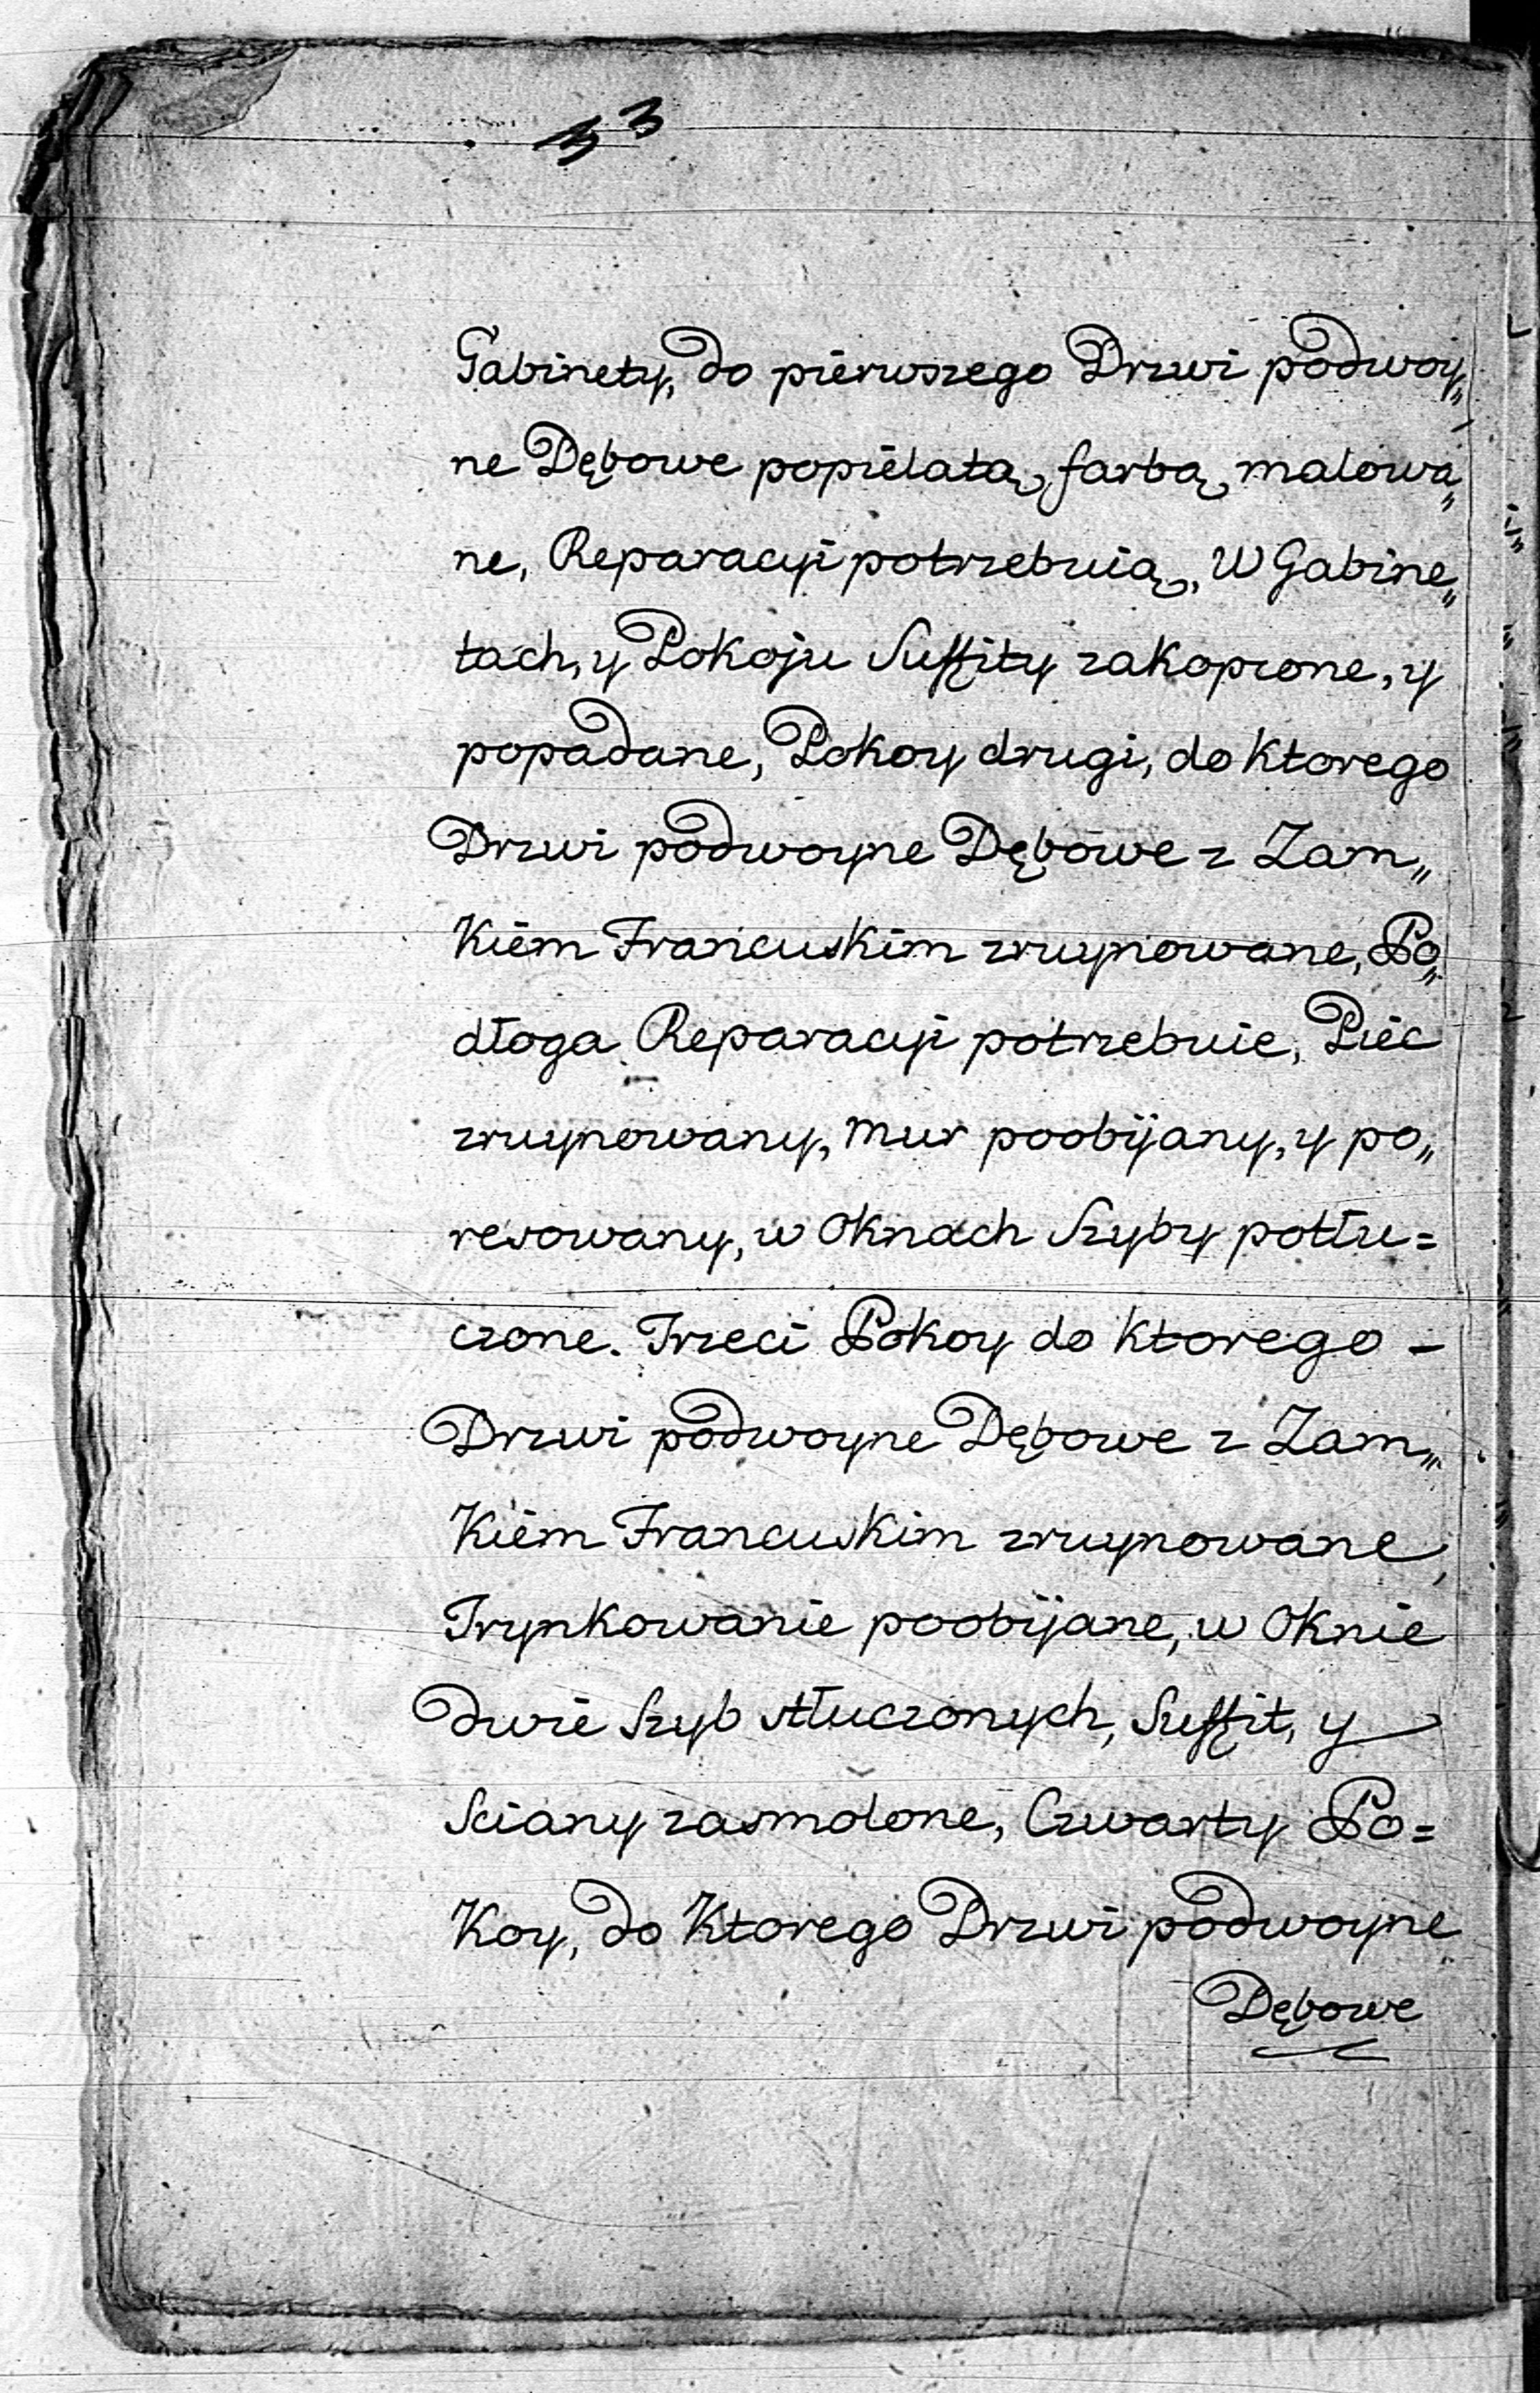 33
Gabinety, do pierwszego Drzwi podwoy„
ne Dębowe popiélatą, farbą, malowa„
ne, Reparacyi potrzebuią, W Gabine„
tach, y Pokoju Suffity zakopcone, y
popadane, Pokoy drugi, do Ktorego
Drzwi podwoyne Dębowe z Zam„
Kiém Francuskim zruynowane, Po„
dłoga Reparacyi potrzebuie, Piéc
zruynowany, mur poobijany, y po„
resowany, w Oknach Szyby potłu=
czone. Trzeci Pokoy do Ktorego -
Drzwi podwoyne Dębowe z Zam„
Kiém Francuskim zruynowane,
Trynkowanie poobijane, w Oknie
dwie Szyb stłuczonych, Suffit, y
Sciany zasmolone, Czwarty Po=
Koy, do Ktorego Drzwi podwoyne
Dębowe